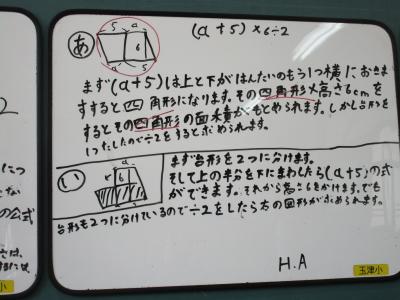 あ
5 a
6
a 5
(a+5)×6÷2
まず(a+5)は上と下がはんたいのもう1つ横におきま
すすると四角形になります。その四角形×高さ6cmを
するとその四角形の面積がもとめられます。しかし台形を
1つたしたので÷2をすると求められます。
い
a
6
まず台形を2つに分けます。
そして上の半分を下にまわしたら(a+5)の式
ができます。それから高さ6をかけます。でも
台形も2つに分けているので÷2をしたら方の図形が求められます。
H.A
玉津小
2
につ
の公式
さは、
小